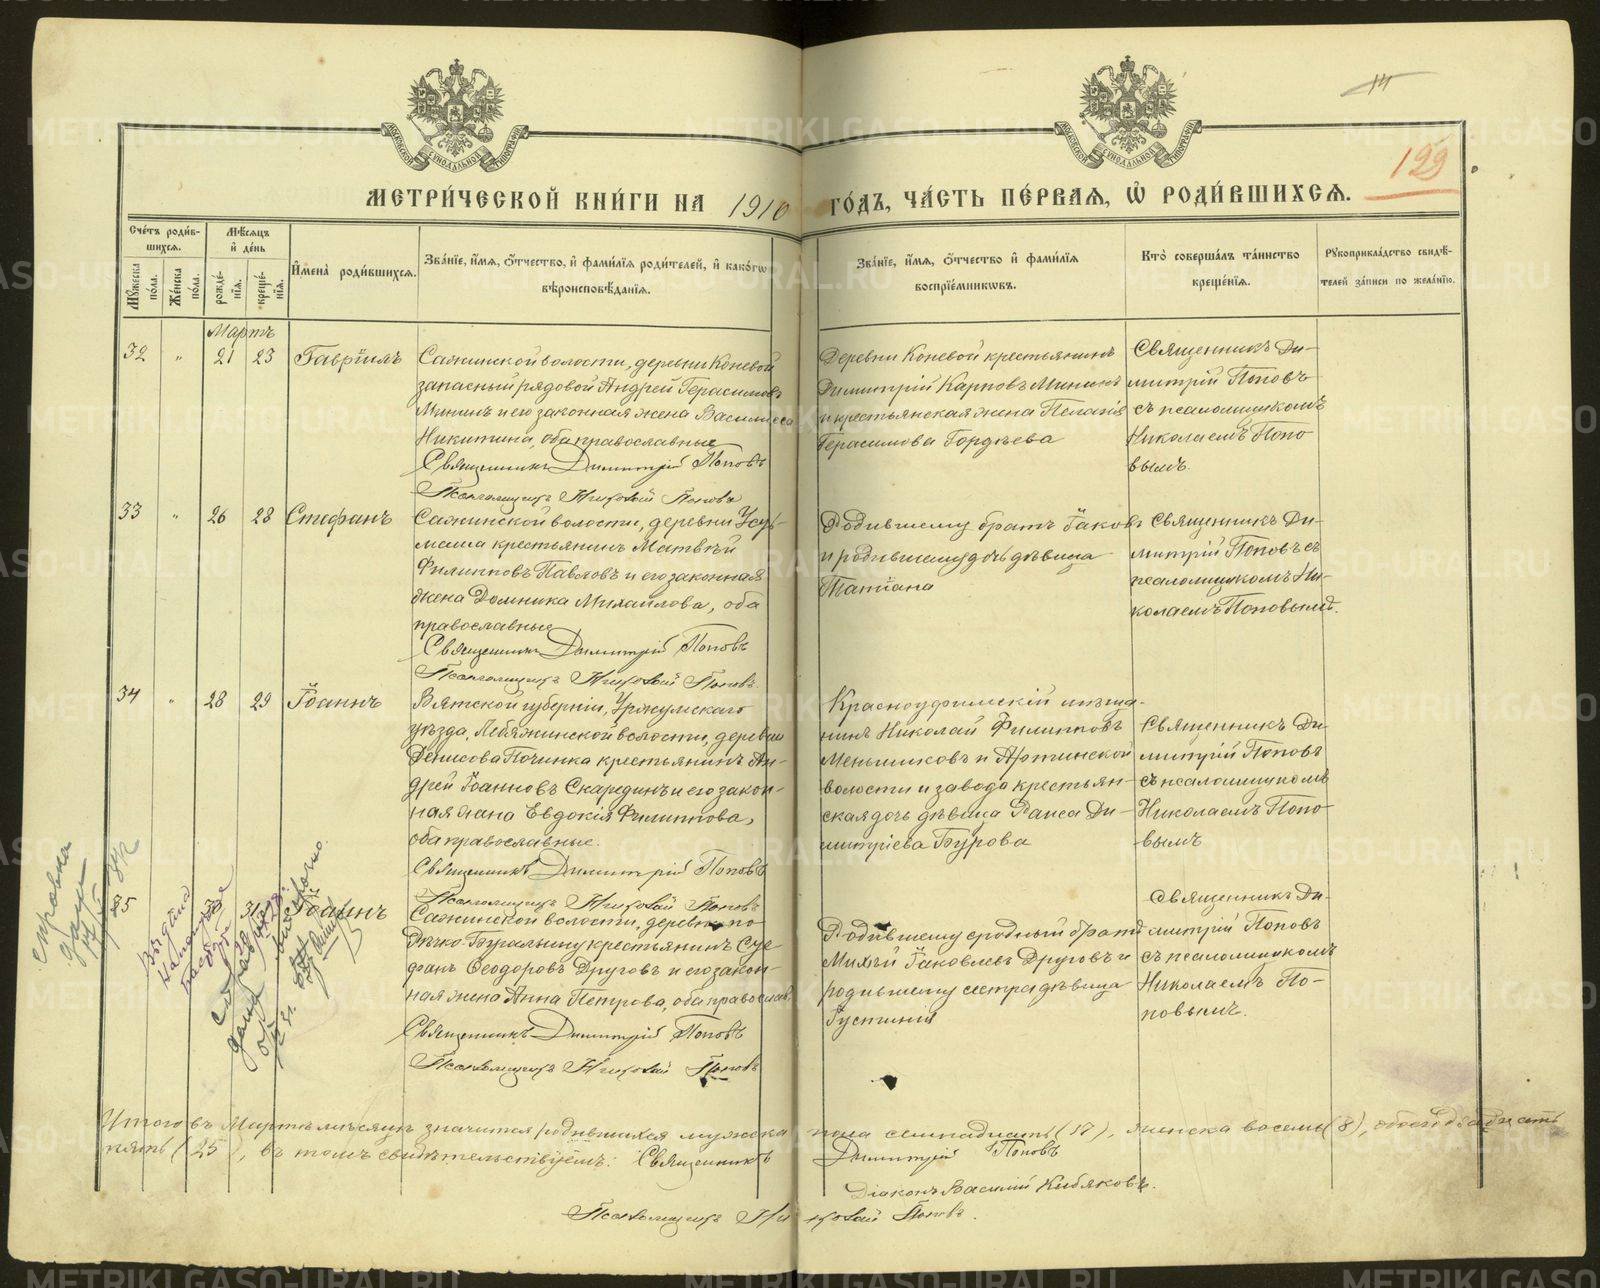 14
129
МЕТРИ́ЧЕСКОЙ КНИ́ГИ НА 1910 ГО́ДЪ, ЧА́СТЬ ПЕ́РВАЯ, Ѡ РОДИ́ВШИХСЯ.
Сче́тъ роди́вшихся.
Мꙋ́жеска по́ла.
Же́нска по́ла.
Мѣ́сяцъ и де́нь
рожде́нїя.
креще́нїя.
И҆мена̀ роди́вшихся.
Зва́нїе, и҆́мя, ѻ҆́тчество, и҆ фами́лїя роди́телей, и҆ како́гѡ вѣроисповѣ́данїя.
Зва́нїе, и҆́мя, ѻ҆́тчество и҆ фами́лїя воспрїе́мникѡвъ.
Кто̀ соверша́лъ та́инство креще́нїя.
Рꙋкоприкла́дство свидѣ́телей за́писи по жела́нїю.
Мартъ
32 " 21 23 Гавріилъ
Сажинской волости, деревни Коневой
запасный рядовой Андрей Герасимовъ
Мининъ и его законная жена Василисса
Никитина, оба православные
Священникъ Димитрій Поповъ
Псаломщикъ Николай Поповъ
Деревни Коневой крестьянинъ
Димитрій Карповъ Мининъ
и крестьянская жена Пелагія
Герасимова Гордѣева
Священникъ Ди-
митрій Поповъ
съ псаломщикомъ
Николаемъ Попо-
вымъ.
33 " 26 28 Стефанъ
Сажинской волости, деревни Усть-
маша крестьянинъ Матвѣй
Филипповъ Павловъ и его законная
жена Домника Михаилова, оба
православные
Священникъ Димитрій Поповъ
Псаломщикъ Николай Поповъ.
Родившему братъ Іаковъ
и родившему дочь дѣвица
Татіана
Священникъ Ди-
митрій Поповъ съ
псаломщикомъ Ни-
колаемъ Поповымъ.
34 " 28 29 Іоаннъ
Вятской губерніи, Уржумскаго
уѣзда, Лебяжинской волости, деревни
Денисова Починка крестьянинъ Ан-
дрей Іоанновъ Скарединъ и его закон-
ная жена Евдокія Филиппова,
оба православные.
Священникъ Димитрій Поповъ
Псаломщикъ Николай Поповъ
Красноуфимскій мѣща-
нинъ Николай Филипповъ
Меньшиковъ и Артинской
волости и завода крестьян-
ская дочь дѣвица Раиса Ди-
митріева Бурова
Священникъ Ди-
митрій Поповъ
съ псаломщикомъ
Николаемъ Попо-
вымъ
35 31 Іоаннъ
Сажинской волости, деревни по
рѣчкѣ Бугалышу крестьянинъ Сте-
фанъ Ѳеодоровъ Друговъ и его закон-
ная жена Анна Петрова, оба православ.
Священникъ Димитрій Поповъ
Псаломщикъ Николай Поповъ
Родившему сродный братъ
Михѣй Іаковлевъ Друговъ и
родившему сестра дѣвица
Іустинія
Священникъ Ди-
митрій Поповъ
съ псаломщикомъ
Николаемъ По-
повымъ.
справка
дан
Итого въ Мартѣ мѣсяцѣ значится родившихся мужска пола семнадцать (17), женска восемь (8), обоего двадцать
пять (25), въ томъ свидѣтельствуемъ: Священникъ Димитрій Поповъ
Діаконъ Василій Кибяковъ.
Псаломщикъ Николай Поповъ.
METRIKI.GASO-URAL.RU